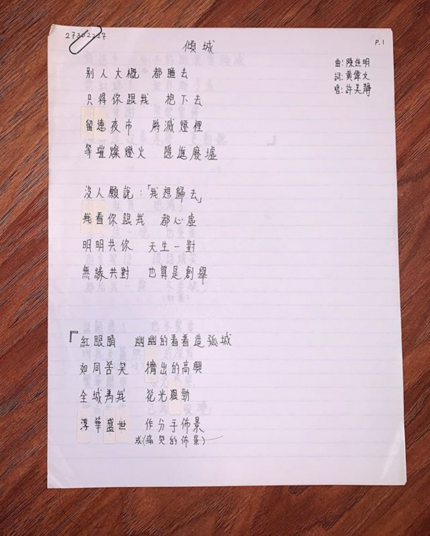 傾城
P.1
曲: 陳佳明
詞: 黃偉文
唱: 許美靜
別人大概 都睡去
只得你跟我 抱下去
留戀夜市 將滅燈裡
等璀燦燈火 隱進廢墟
沒人願說：「我想歸去」
看你跟我 都心虛
明明共你 天生一對
無緣共對 也算是創舉
『紅眼睛 幽幽的看着這孤城
如同苦笑 擠出的高興
全城為我 花光狠勁
浮華盛世 作分手佈景
或(痛哭的佈景)